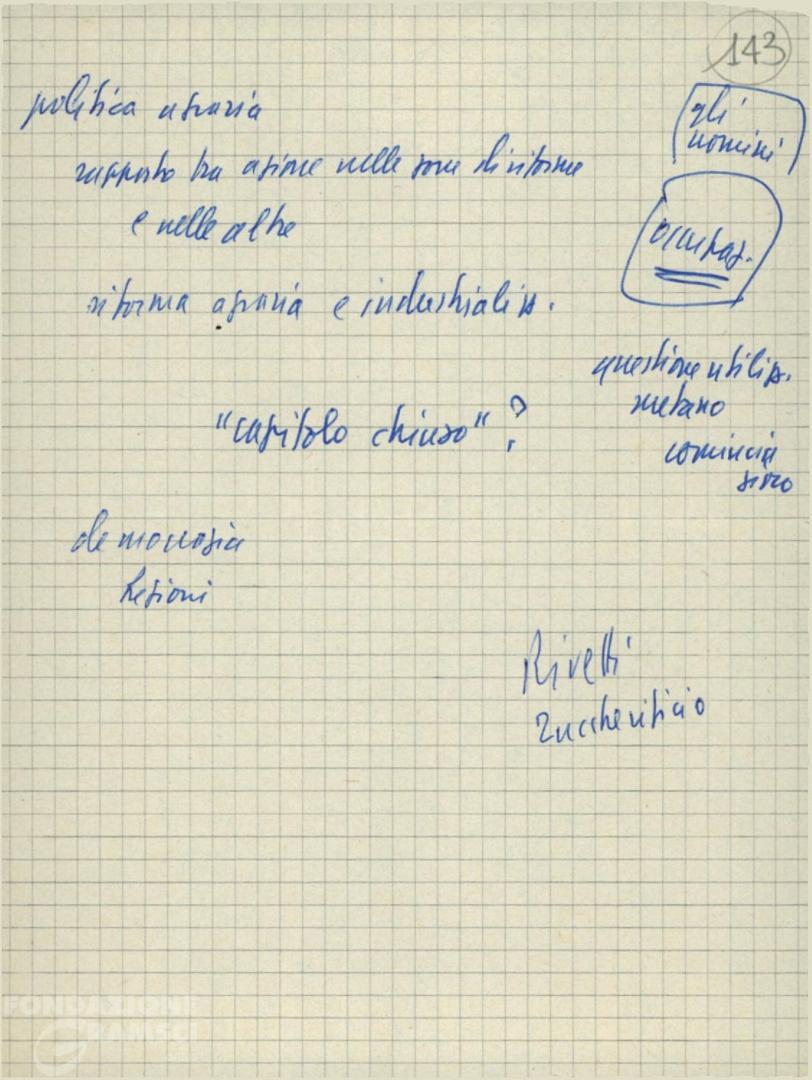 143
politica agraria
rapporto tra azione nelle zone di riforma
e nelle altre
riforma agraria e industrializz.
"capitolo chiuso"?
democrazia
Regioni
gli
uomini
occupaz.
questione utilizz.
metano
comincia
Rivetti
Zuccherificio
FONDAZIONE
GRAMSCI